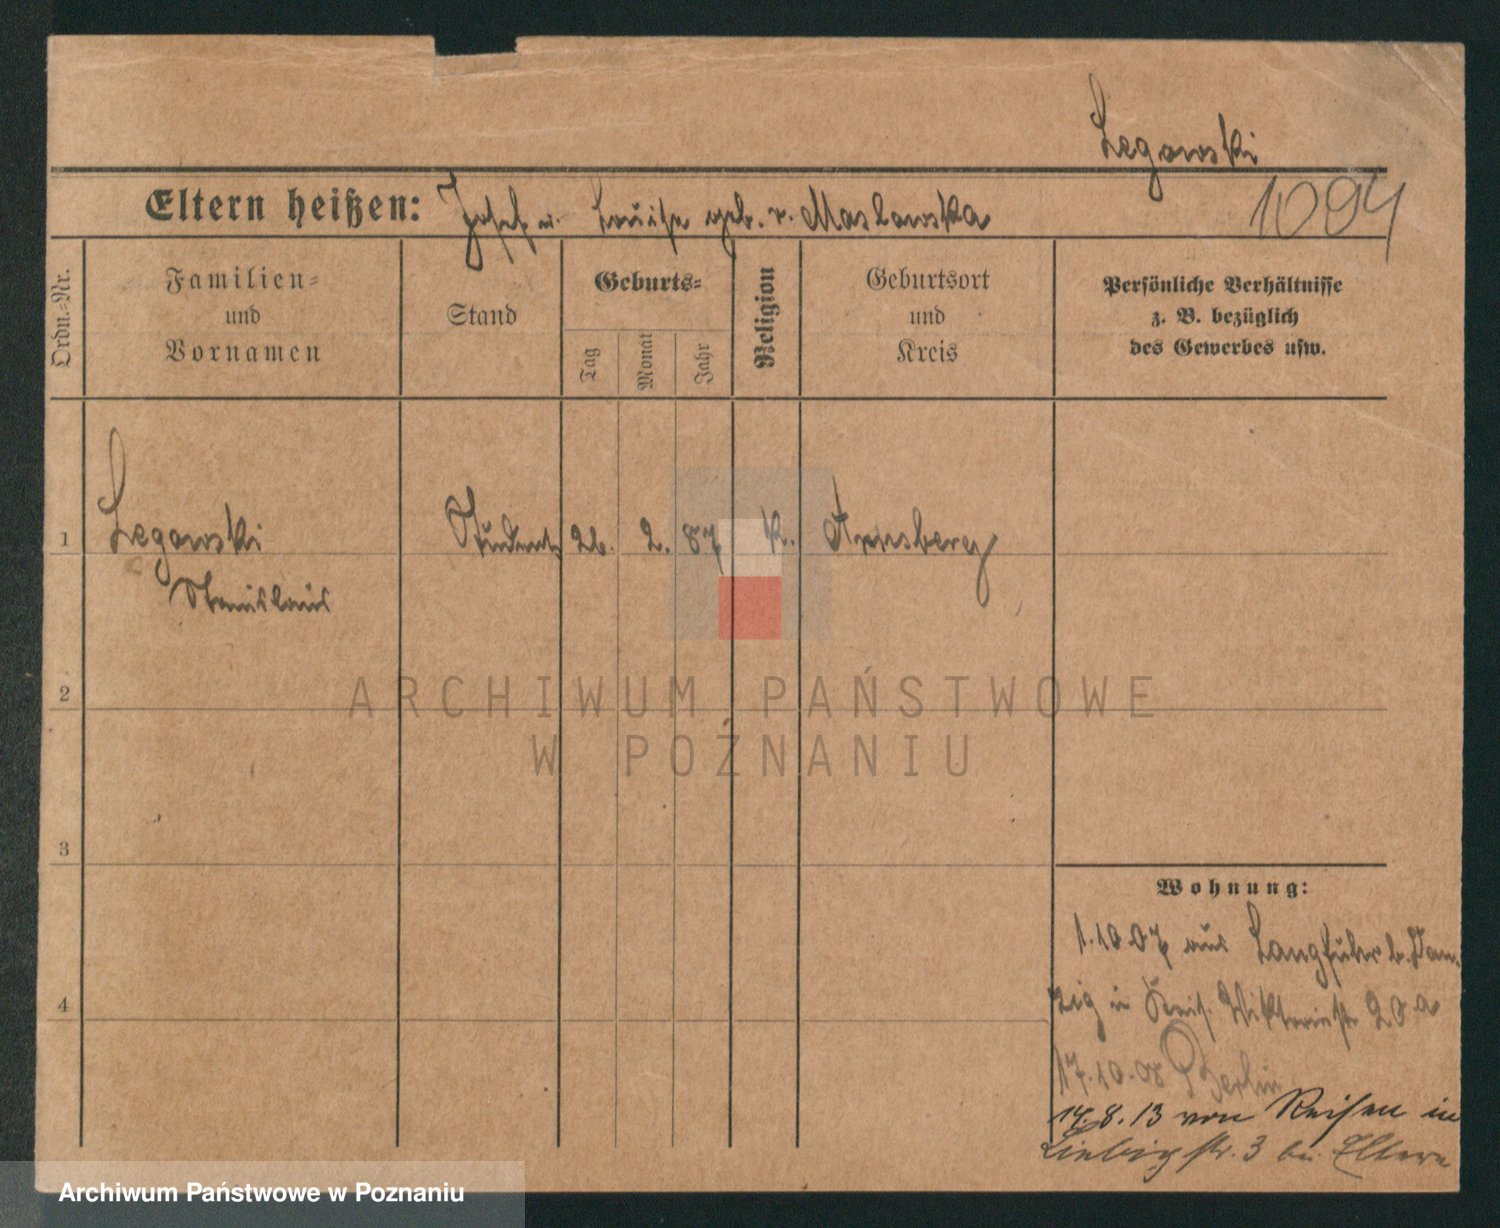 Legowski
1094
Eltern heißen: Josef u. Louise geb. v. Maslowska
Ordn.-Nr.
Familien-
und
Vornamen
Stand
Geburts-
Tag
Monat
Jahr
Religion
Geburtsort
und
Kreis
Persönliche Verhältnisse
z. B. bezüglich
des Gewerbes usw.
1 Legowski Student 26. 2. 87 k. Arnsberg
Stanislaus
2
3
4
ARCHIWUM PAŃSTWOWE
W POZNANIU
Wohnung:
1.10.07 aus Langfuhr b. Dan-
zig in Viktoriastr 20a
17.10.08 Berlin
14.8.13 von Reisen in
Liebigstr. 3 bei Eltern
Archiwum Państwowe w Poznaniu